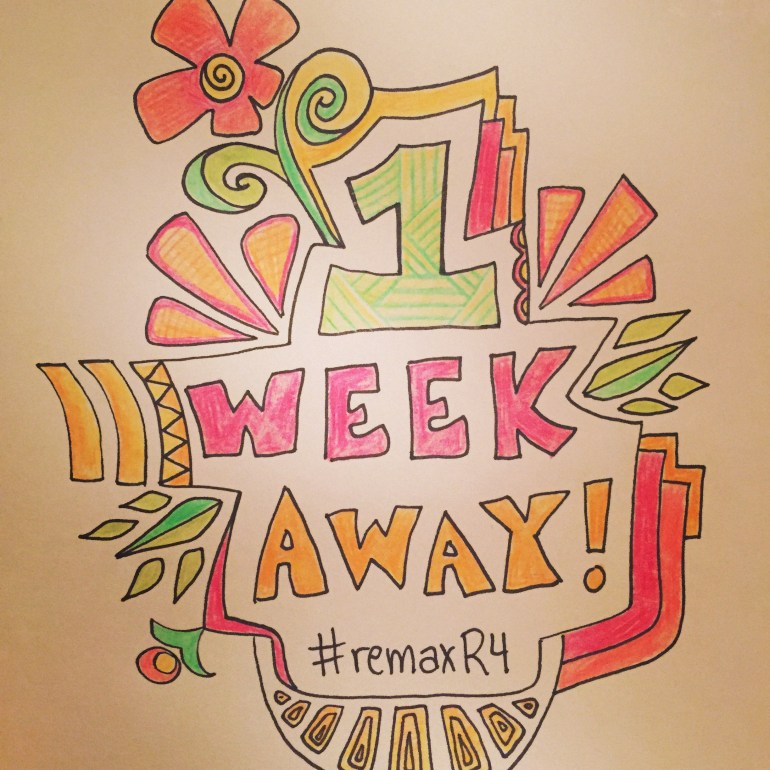 1
WEEK
AWAY!
#remaxR4